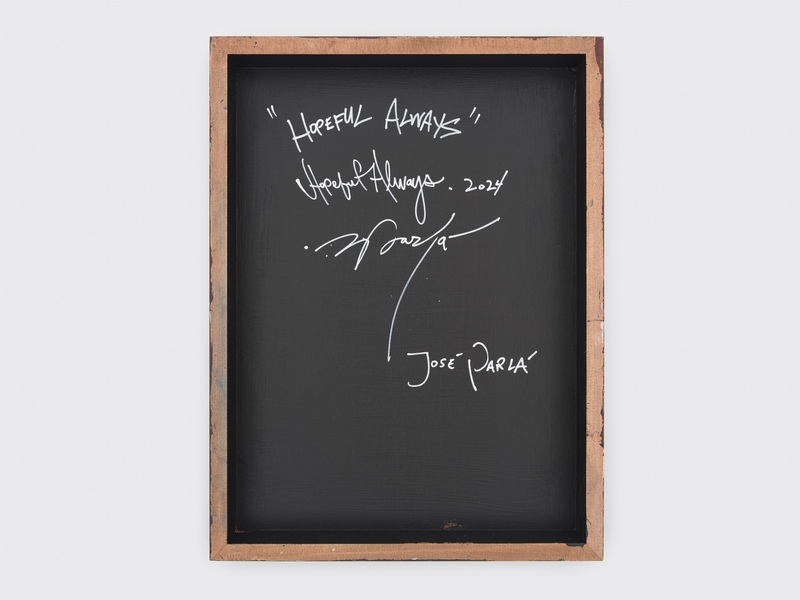 "HOPEFUL ALWAYS"
Hopeful Always. 2024
Parlá
JOSÉ PARLÁ